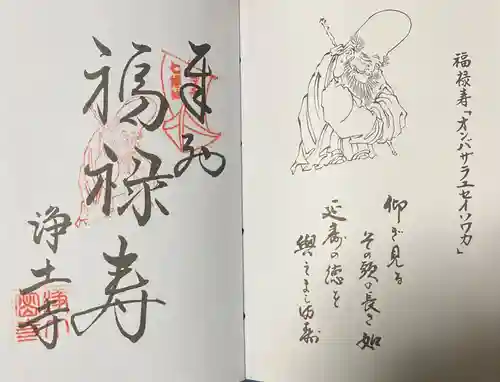 福禄寿「オンバサラユセイソワカ」
仰ぎ見る
その頭の長き如
延寿の徳を
與えまし満寿
福禄寿
浄土寺